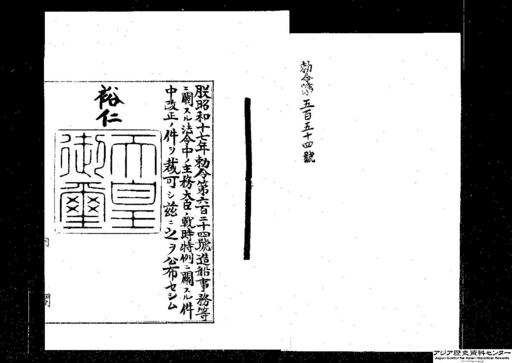 勅令第五百五十四號
朕昭和十七年勅令第六百二十四號造船事務等
ニ關スル法令中ノ主務大臣ノ戰時特例ニ關スル件
中改正ノ件ヲ裁可シ茲ニ之ヲ公布セシム
裕仁
天皇
御璽
内
閣
アジア歴史資料センター
Japan Center for Asian Historical Records